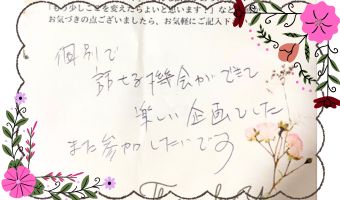 「もう少しここを変えたらよいと思います！」など
お気づきの点ございましたら、お気軽にご記入下
個別で
話せる機会ができて
楽しい企画でした
また参加したいです